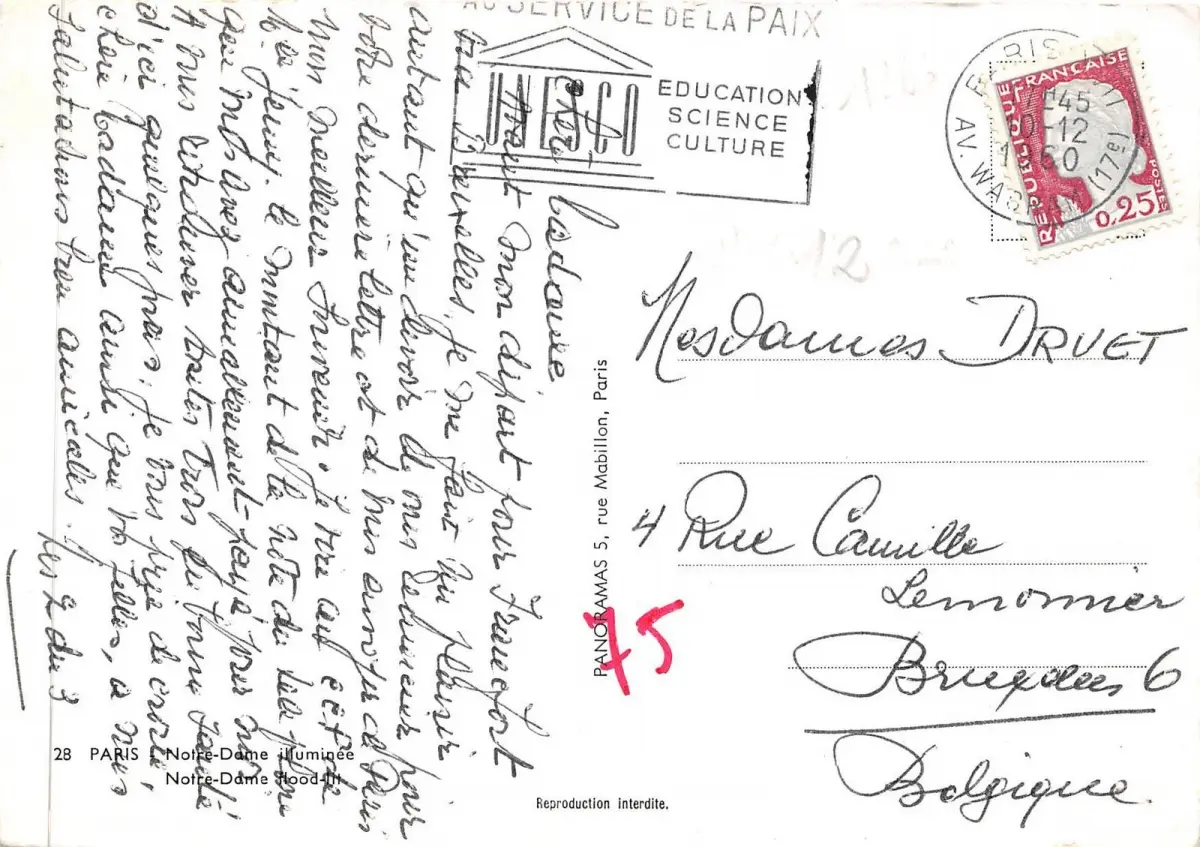 AU SERVICE DE LA PAIX
UNESCO
EDUCATION
SCIENCE
CULTURE
PARIS
AV. WAGRAM (17è)
45
12
60
REPUBLIQUE FRANÇAISE
POSTES
0,25
12
Chère Madame
Avant mon départ pour Francfort
via Bruxelles, je me fait un plaisir
autant qu'un devoir de vous remercier pour
votre dernière lettre et de vous envoyer de Paris
mon meilleur souvenir. Je
le montant de la note du téléphone
que vous avez aimablement payé pour moi
A vous retrouver toutes trois en bonne santé
d'ici quelques jours, je vous prie de croire
chère Madame ainsi que vos filles, à mes
salutations bien amicales.
Mesdames DRUET
4 Rue Camille
Lemonnier
Bruxelles 6
Belgique
75
PANORAMAS 5, rue Mabillon, Paris
28 PARIS - Notre-Dame illuminée
Notre-Dame flood-lit
Reproduction interdite.